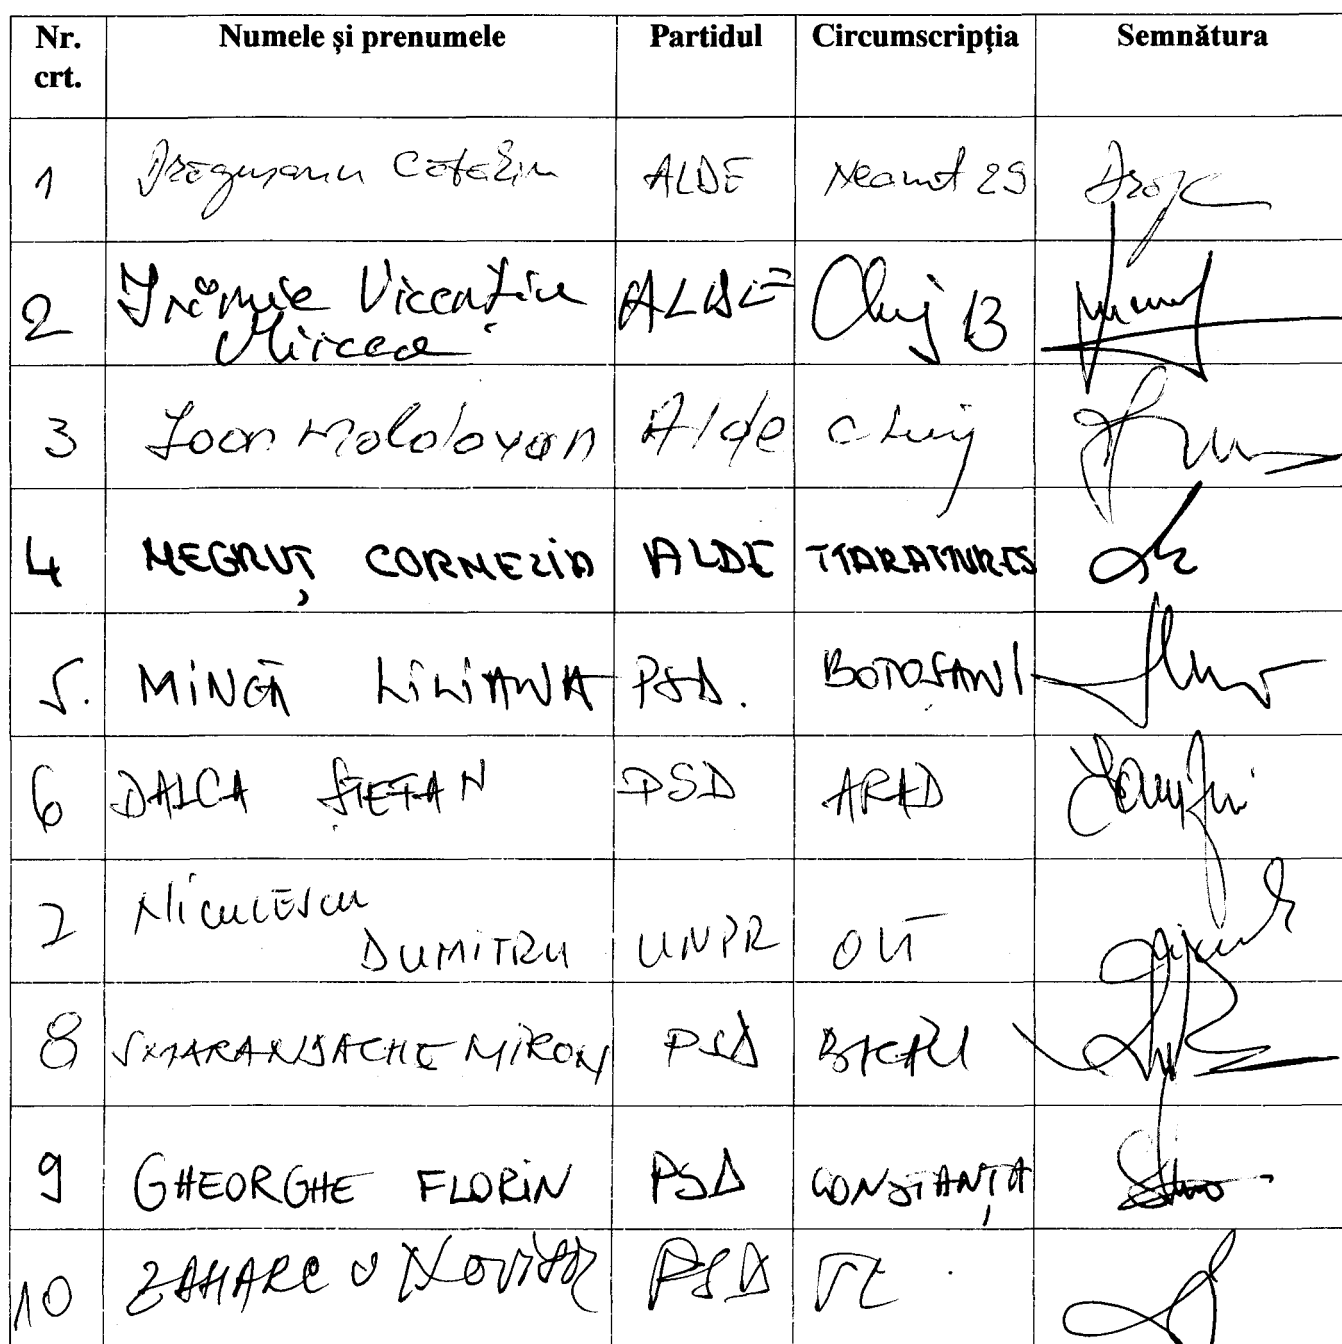 Nr. crt. Numele și prenumele Partidul Circumscripția Semnătura
1 Drăgușanu Cătălin ALDE Neamț 29
2 Irimie Vicențiu Mircea ALDE Cluj 13
3 Ioan Moldovan Alde Cluj
4 NEGRUȚ CORNELIA ALDE MARAMUREȘ
5. MINGĂ LILIANA PSD. BOTOȘANI
6 DALCA ȘTEFAN PSD ARAD
7 NICULESCU DUMITRU UNPR OLT
8 SMARANDACHE MIRON PSD BACĂU
9 GHEORGHE FLORIN PSD CONSTANȚA
10 ZAHARCU PSD TL